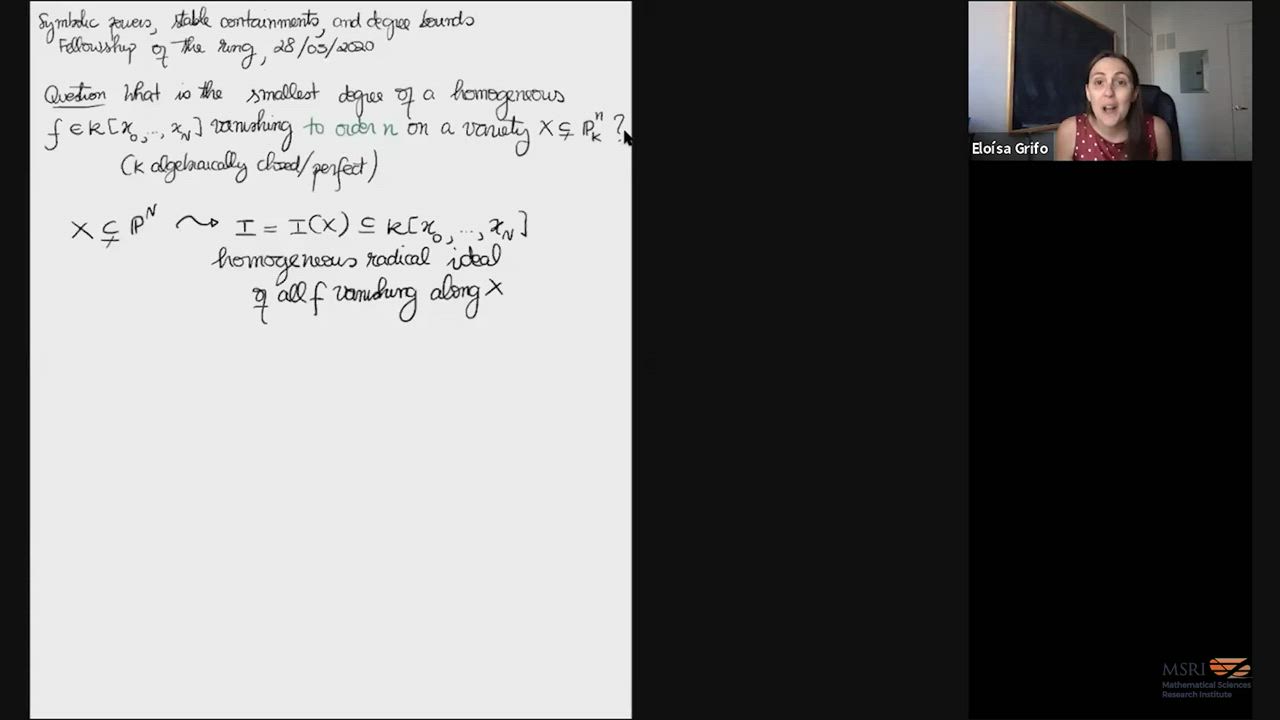 Symbolic powers, stable containments, and degree bounds
Fellowship of the ring, 28/05/2020
Question What is the smallest degree of a homogeneous
f ∈ k[x₀, ..., x_N] vanishing to order n on a variety X ⊊ ℙⁿ_k ?
(k algebraically closed/perfect)
X ⊊ ℙ^N ⇝ I = I(X) ⊆ k[x₀, ..., x_N]
homogeneous radical ideal
of all f vanishing along X
Eloísa Grifo
MSRI
Mathematical Sciences
Research Institute